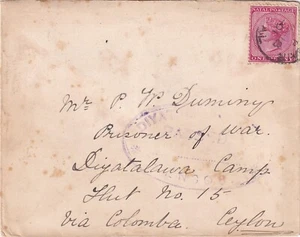 NATAL POSTAGE
ONE
Mr P. W. Duminy
Prisoner of War.
Diyatalawa Camp
Hut No. 15
Via Colomba. Ceylon